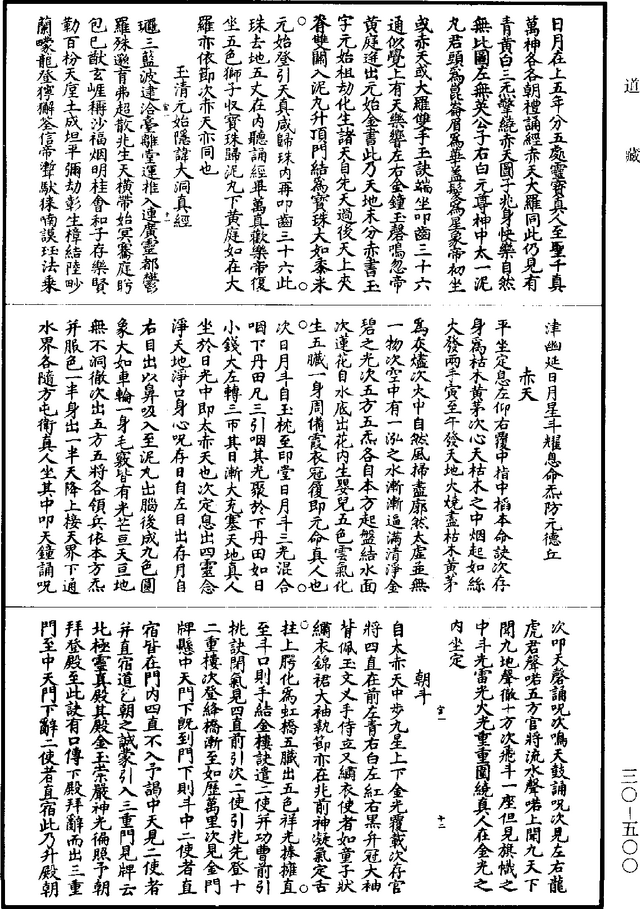 道藏
日月在上五年分五處靈寶真人至聖千真
萬神各各朝禮誦經赤天大羅同此仍見有
青黃白三炁擎繞赤天圓子兆身快樂自然
無比圖左無英公子右白元尊神中太一泥
丸君頭為崑崙眉為華蓋髮為星象帝初坐
或赤天或大羅雙手玉訣端坐叩齒三十六
通似覺上有天樂響左右金鐘玉聲鳴忽帝
黃庭遥出元始金書此乃天地未分赤書玉
字元始祖劫化生諸天自先天過後天上夾
脊雙關入泥丸升頂門結為寶珠大如黍米
元始登引天真咸歸珠内再叩齒三十六此
珠去地五丈在内聽誦經畢萬真歡樂帝復
坐五色獅子收寶珠歸泥丸下黃庭如在大
羅亦依即次赤天亦同也
玉清元始隱諱大洞真經
三藍波逮洽臺離堂運推入連廣靈都鬱
羅殊邀育弗超散兆生天橫帶始冥騫庭眄
包巳猷玄崕稱沙福烟明桂會和子存樂賢
勤百枌天度土成坦平彌劫彰生樟結陸眇
蘭曚龍登獰獬荃信帝馱徠喃謨玨法乘
津幽延日月星斗耀息命炁防元德丘
赤天
平坐定息左仰右覆中指中搯本命訣次存
身為枯木黃茅次心天枯木之中烟起如絲
大發兩手寅至午發天地火燒盡枯木黃茅
為灰燼次大中自然風掃盡廓然太虛並無
一物次空中有一泓之水漸漸逼滿清淨金
碧之光次五方五炁各自本方起盤結水面
次蓮花自水底出花内生嬰兒五色雲氣化
生五臟一身周備霞衣冠履即元命真人也
次日月斗自玉枕至印堂日月斗三光混合
咽下丹田凡三引咽其光聚於下丹田如日
小錢大左轉三帀其日漸大充塞天地真人
坐於日光中即太赤天也次定息出四靈念
淨天地淨口身心呪存日自左目出存月自
右目出以鼻吸入至泥丸出腦後成九色圓
象大如車輪一身毛竅皆有光芒亘天亘地
無不洞徹次出五方五將各領兵依本方炁
并服色一半身出一半天降上接天界下通
水界各隨方屯衛真人坐其中叩天鐘誦呪
次叩天聲誦呪次鳴天鼓誦呪次見左右龍
虎君聲喏五方官將流水聲喏上開九天下
開九地聲徹十方次飛斗一座但見旗幟之
中斗光雷光火光重重圍繞真人在金光之
内坐定
朝斗
自太赤天中步九星上下金光覆載次存官
將四直在前左青右白左紅右黑并冠大袖
皆佩玉文叉手侍立又繡衣使者如童子狀
繡衣錦裙大袖執節亦在兆前神凝氣定舌
拄上腭化為虹橋五臟出五色祥光捧擁直
至斗口則手結金樓訣遣二使并功曹前引
挑訣閉氣見四直前引次二使引兆光登十
二重樓次登絳橋漸至如歷萬里次見金門
牌懸中天門下既到門下則斗中二使者直
宿皆在門内四直不入予謁中天見二使者
并直宿道乞朝之誠蒙引入三重門見牌云
北極靈真殿其殿金玉崇嚴神光徧照予朝
拜登殿至此訣有口傳下殿拜辭而出三重
門至中天門下辭二使者直宿此乃升殿朝
三〇—五〇〇